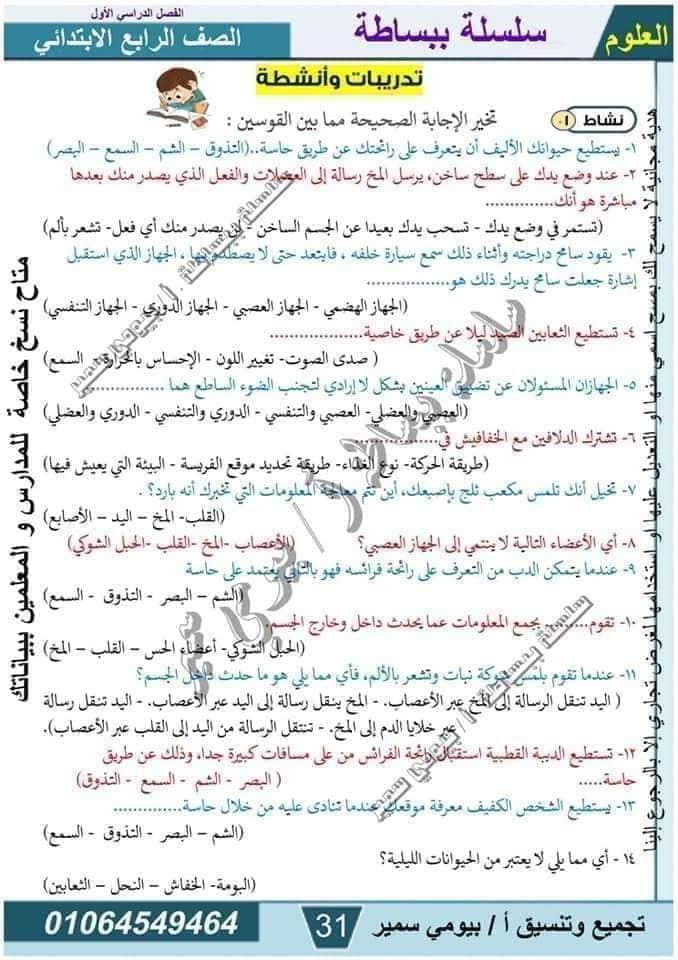 الفصل الدراسي الأول
العلوم
سلسلة ببساطة
الصف الرابع الابتدائي
تدريبات وأنشطة
نشاط ٠١ تخير الإجابة الصحيحة مما بين القوسين :
١- يستطيع حيوانك الأليف أن يتعرف على رائحتك عن طريق حاسة..(التذوق – الشم – السمع – البصر)
٢- عند وضع يدك على سطح ساخن، يرسل المخ رسالة إلى العضلات والفعل الذي يصدر منك بعدها
مباشرة هو أنك................
(تستمر في وضع يدك - تسحب يدك بعيدا عن الجسم الساخن - لن يصدر منك أي فعل- تشعر بألم)
٣- يقود سامح دراجته وأثناء ذلك سمع سيارة خلفه ، فابتعد حتى لا يصطدم بها ، الجهاز الذي استقبل
إشارة جعلت سامح يدرك ذلك هو................
(الجهاز الهضمي - الجهاز العصبي - الجهاز الدوري - الجهاز التنفسي)
٤- تستطيع الثعابين الصيد ليلا عن طريق خاصية................
( صدى الصوت- تغيير اللون - الإحساس بالحرارة - السمع)
٥- الجهازان المسئولان عن تضييق العينين بشكل لا إرادي لتجنب الضوء الساطع هما ................
(العصبي والعضلي- العصبي والتنفسي - الدوري والتنفسي - الدوري والعضلي)
٦- تشترك الدلافين مع الخفافيش في................
(طريقة الحركة- نوع الغذاء- طريقة تحديد موقع الفريسة - البيئة التي يعيش فيها)
٧- تخيل أنك تلمس مكعب ثلج بإصبعك، أين تتم معالجة المعلومات التي تخبرك أنه بارد؟ .
(القلب- المخ – اليد – الأصابع)
٨- أي الأعضاء التالية لا ينتمي إلى الجهاز العصبي؟ (الأعصاب -المخ -القلب -الحبل الشوكي)
٩- عندما يتمكن الدب من التعرف على رائحة فرائسه فهو بالتالي يعتمد على حاسة
(الشم – البصر - التذوق - السمع)
١٠- تقوم.......... بجمع المعلومات عما يحدث داخل وخارج الجسم.
(الحبل الشوكي- أعضاء الحس – القلب – المخ)
١١- عندما تقوم بلمس شوكة نبات وتشعر بالألم، فأي مما يلي هو ما حدث داخل الجسم؟
( اليد تنقل الرسالة إلى المخ عبر الأعصاب. - المخ ينقل رسالة إلى اليد عبر الأعصاب. - اليد تنقل رسالة
عبر خلايا الدم إلى المخ. - تنتقل الرسالة من اليد إلى القلب عبر الأعصاب)
١٢- تستطيع الدببة القطبية استقبال رائحة الفرائس من على مسافات كبيرة جدا، وذلك عن طريق
حاسة..... ( البصر - الشم - السمع - التذوق)
١٣- يستطيع الشخص الكفيف معرفة موقعك عندما تنادى عليه من خلال حاسة................
(الشم – البصر - التذوق - السمع)
١٤ - أي مما يلي لا يعتبر من الحيوانات الليلية؟
(البومة- الخفاش – النحل - الثعابين)
متاح نسخ خاصة للمدارس و المعلمين ببياناتك
تجميع وتنسيق أ / بيومي سمير
31
01064549464